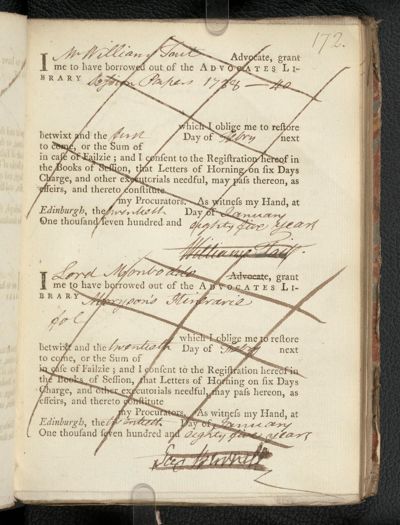 172.
I Mr William Tait Advocate, grant
me to have borrowed out of the ADVOCATES LI-
BRARY Session Papers 1738 — 40
which I oblige me to restore
betwixt and the first Day of Febry next
to come, or the Sum of
in case of Failzie; and I consent to the Registration hereof in
the Books of Session, that Letters of Horning on six Days
Charge, and other executorials needful, may pass thereon, as
effeirs, and thereto constitute
my Procurators. As witness my Hand, at
Edinburgh, the twentieth Day of January
One thousand seven hundred and eighty five years
William Tait.
I Lord Monboddo Advocate, grant
me to have borrowed out of the ADVOCATES LI-
BRARY Moryson's Itinerarie
fol
which I oblige me to restore
betwixt and the twentieth Day of Febry next
to come, or the Sum of
in case of Failzie; and I consent to the Registration hereof in
the Books of Session, that Letters of Horning on six Days
Charge, and other executorials needful, may pass hereon, as
effeirs, and thereto constitute
my Procurators. As witness my Hand, at
Edinburgh, the twentieth Day of January
One thousand seven hundred and eighty five years
Burnett